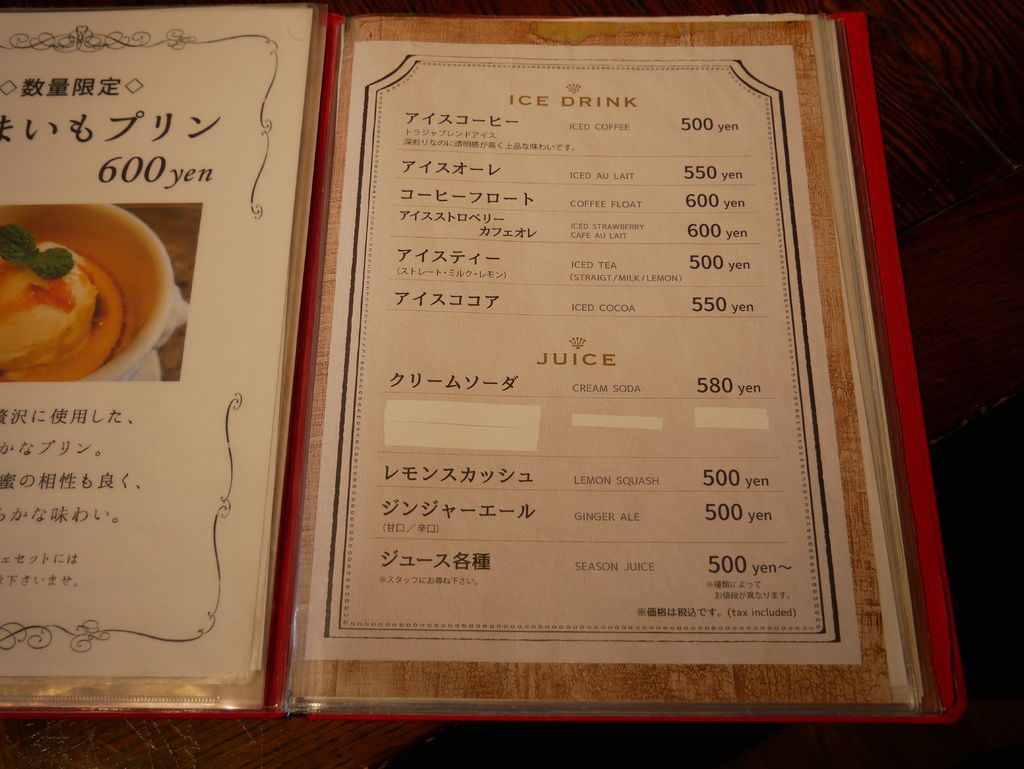 ◇数量限定◇
まいもプリン
600yen
贅沢に使用した、
かなプリン。
蜜の相性も良く、
らかな味わい。
ェセットには
下さいませ。
ICE DRINK
アイスコーヒー ICED COFFEE 500 yen
トラジャブレンドアイス
深煎りなのに透明感が高く上品な味わいです。
アイスオーレ ICED AU LAIT 550 yen
コーヒーフロート COFFEE FLOAT 600 yen
アイスストロベリー ICED STRAWBERRY
カフェオレ CAFE AU LAIT 600 yen
アイスティー ICED TEA 500 yen
(ストレート・ミルク・レモン) (STRAIGT/MILK/LEMON)
アイスココア ICED COCOA 550 yen
JUICE
クリームソーダ CREAM SODA 580 yen
レモンスカッシュ LEMON SQUASH 500 yen
ジンジャーエール GINGER ALE 500 yen
(甘口／辛口)
ジュース各種 SEASON JUICE 500 yen～
※スタッフにお尋ね下さい。 ※種類によって
お値段が異なります。
※価格は税込です。(tax included)